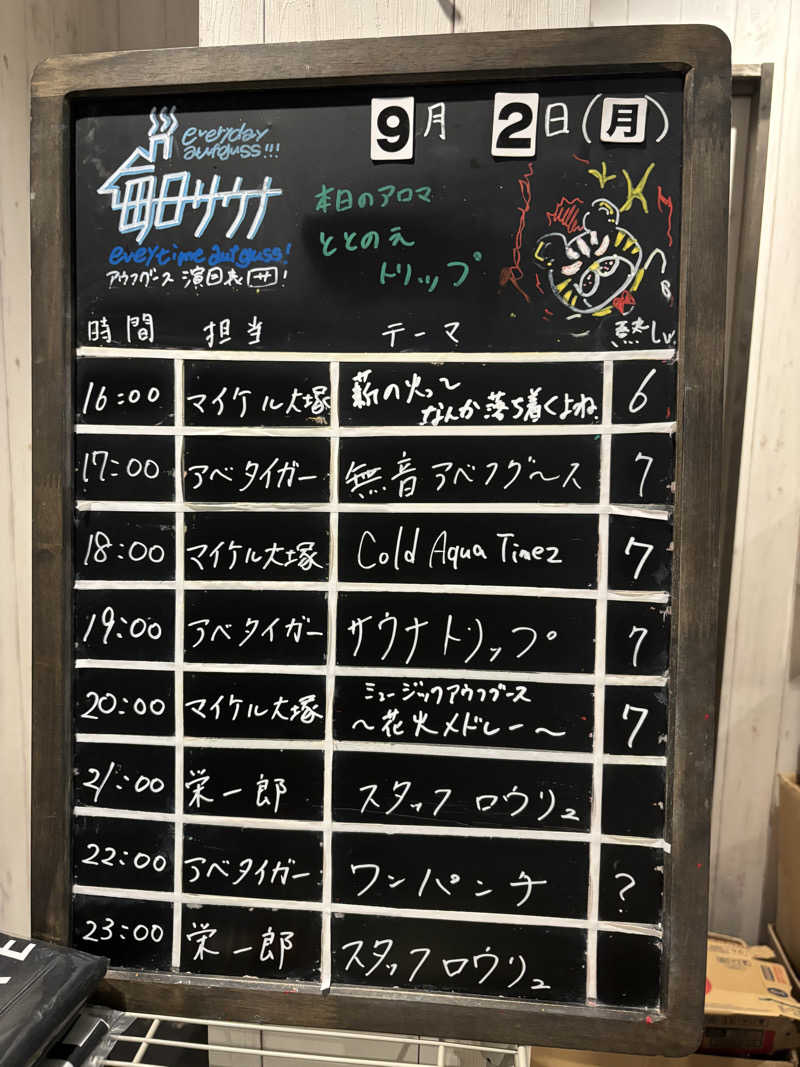 everyday
aufguss!!!
毎日サウナ
everytime aufguss!
アウフグース 演目表 サ!
9月 2日(月)
本日のアロマ
ととのえ
トリップ
時間 担当 テーマ 熱Lv.
16:00 マイケル大塚 薪の火って なんか落ち着くよね 6
17:00 アベタイガー 無音アベフグ〜ス 7
18:00 マイケル大塚 Cold Aqua Timez 7
19:00 アベタイガー サウナトリップ 7
20:00 マイケル大塚 ミュージックアウフグース 〜花火メドレー〜 7
21:00 栄一郎 スタッフロウリュ
22:00 アベタイガー ワンパンチ ?
23:00 栄一郎 スタッフロウリュ